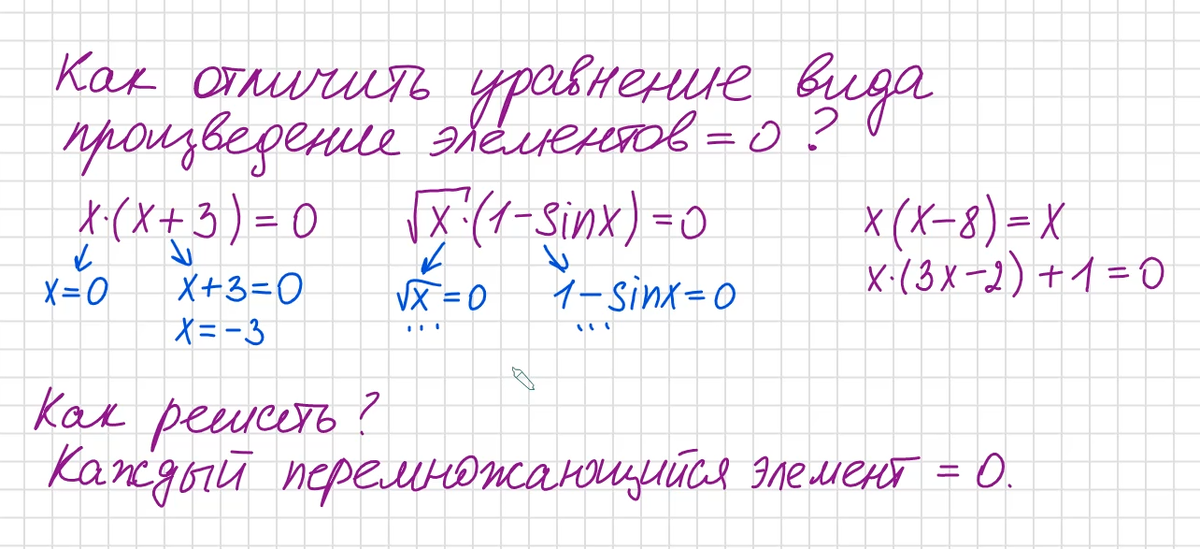 Как отличить уравнение вида
произведение элементов = 0 ?
x·(x+3)=0
√x·(1-sinx)=0
x(x-8)=x
x=0
x+3=0
√x=0
1-sinx=0
x·(3x-2)+1=0
x=-3
...
...
Как решать?
Каждый перемножающийся элемент = 0.